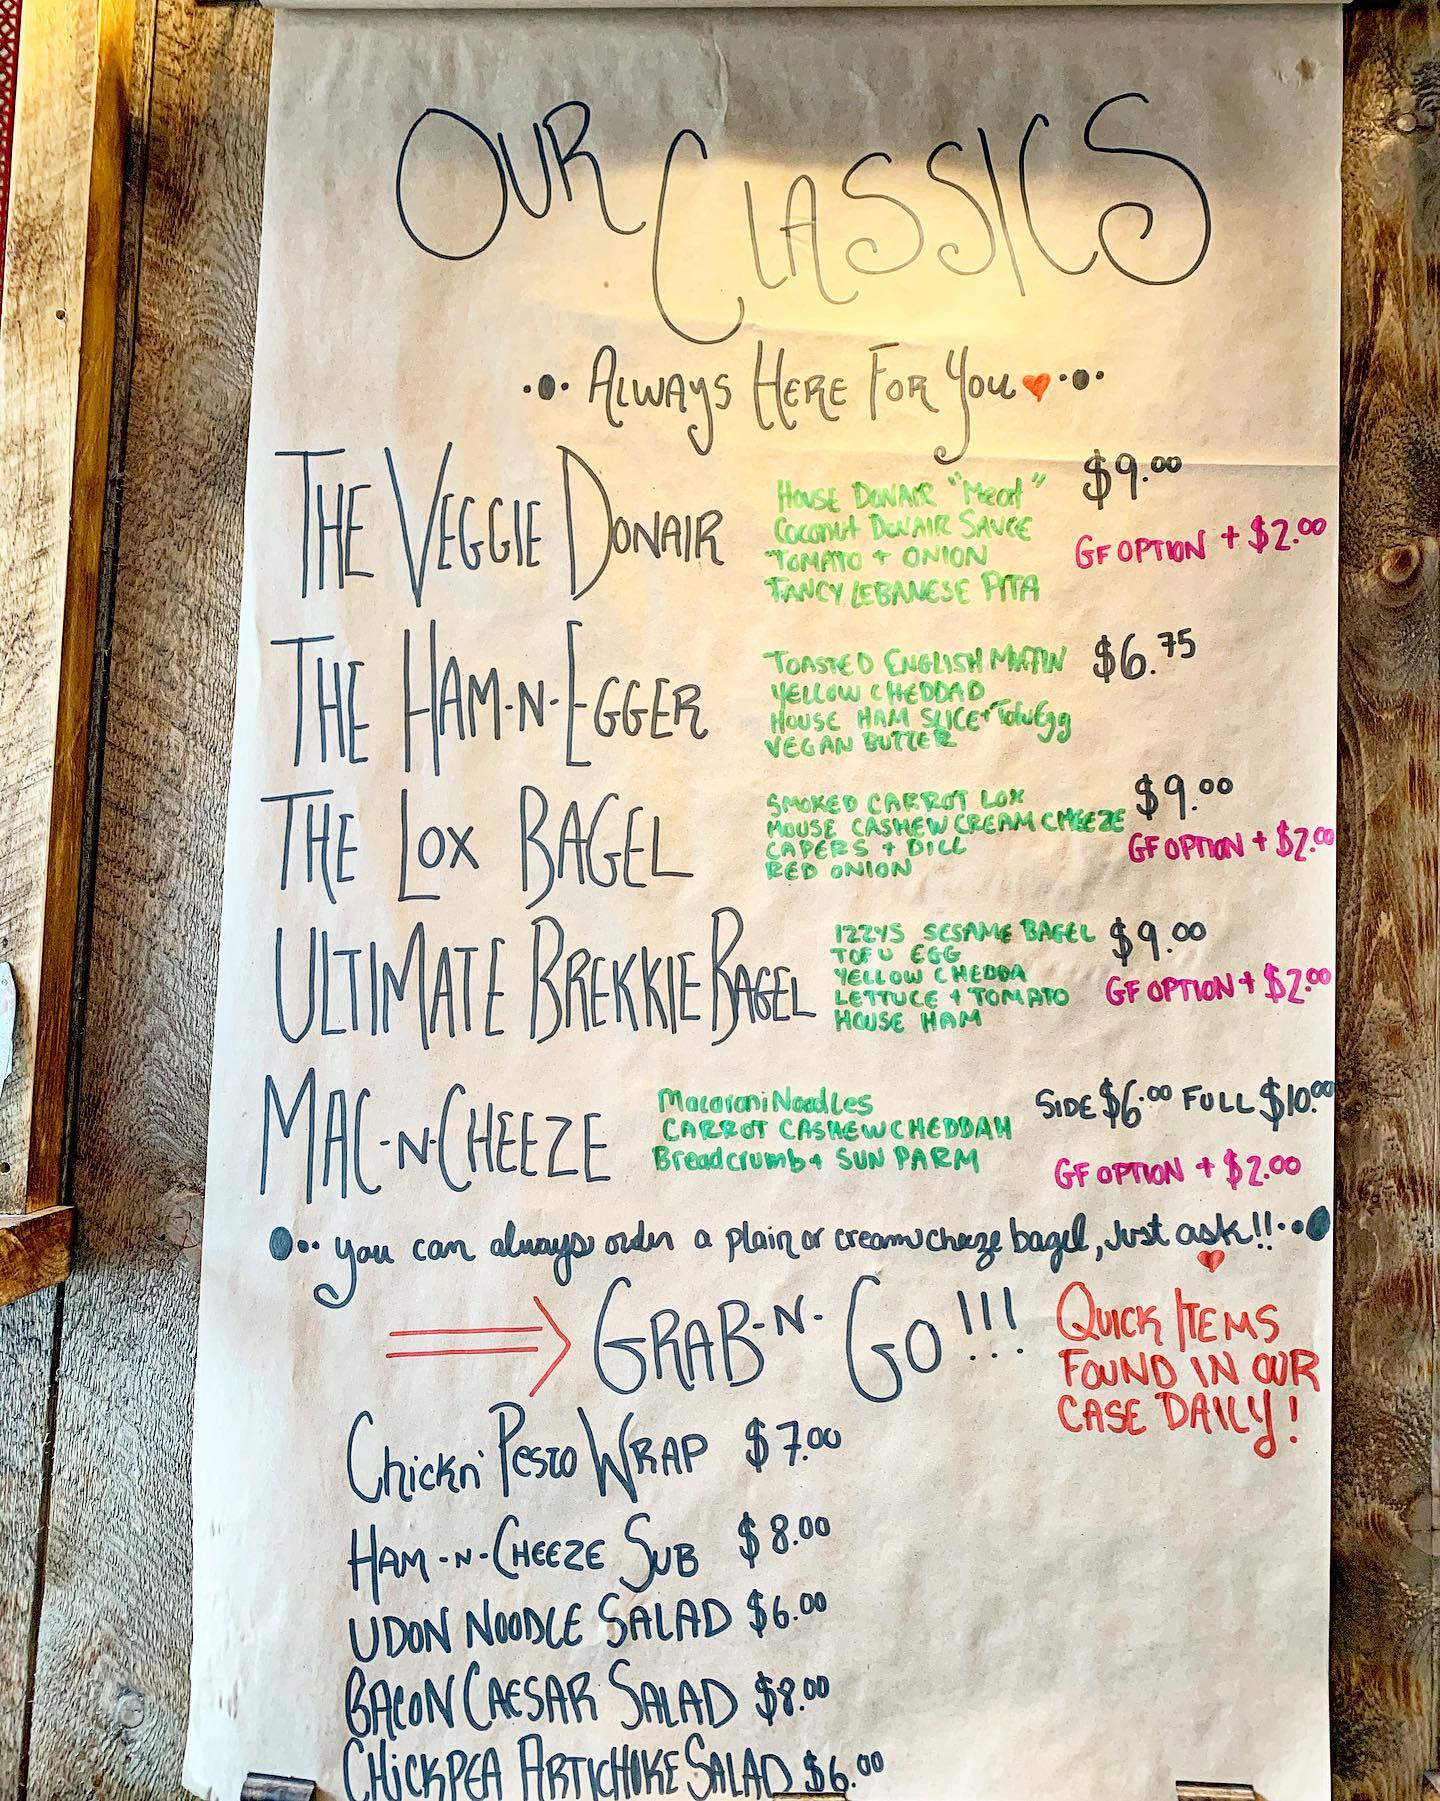 OUR CLASSICS
ALWAYS HERE FOR YOU
THE VEGGIE DONAIR
HOUSE DONAIR "Meat"
COCONUT DONAIR SAUCE
TOMATO + ONION
FANCY LEBANESE PITA
$9.00
GF OPTION + $2.00
THE HAM-N-EGGER
TOASTED ENGLISH MUFFIN
YELLOW CHEDDAD
HOUSE HAM SLICE + TofuEgg
VEGAN BUTTER
$6.75
THE LOX BAGEL
SMOKED CARROT LOX
HOUSE CASHEW CREAM CHEEZE
CAPERS + DILL
RED ONION
$9.00
GF OPTION + $2.00
ULTIMATE BREKKIE BAGEL
IZZYS SESAME BAGEL
TOFU EGG
YELLOW CHEDDA
LETTUCE + TOMATO
HOUSE HAM
$9.00
GF OPTION + $2.00
MAC-N-CHEEZE
Macaroni Noodles
CARROT CASHEW CHEDDAH
Breadcrumb + SUN PARM
SIDE $6.00 FULL $10.00
GF OPTION + $2.00
you can always order a plain or creamcheeze bagel, Just ask!!
GRAB-N-GO!!!
QUICK ITEMS
FOUND IN OUR
CASE DAILY!
Chickn' Pesto WRAP $7.00
HAM-N-CHEEZE SUB $8.00
UDON NOODLE SALAD $6.00
BACON CAESAR SALAD $8.00
CHICKPEA ARTICHOKE SALAD $6.00